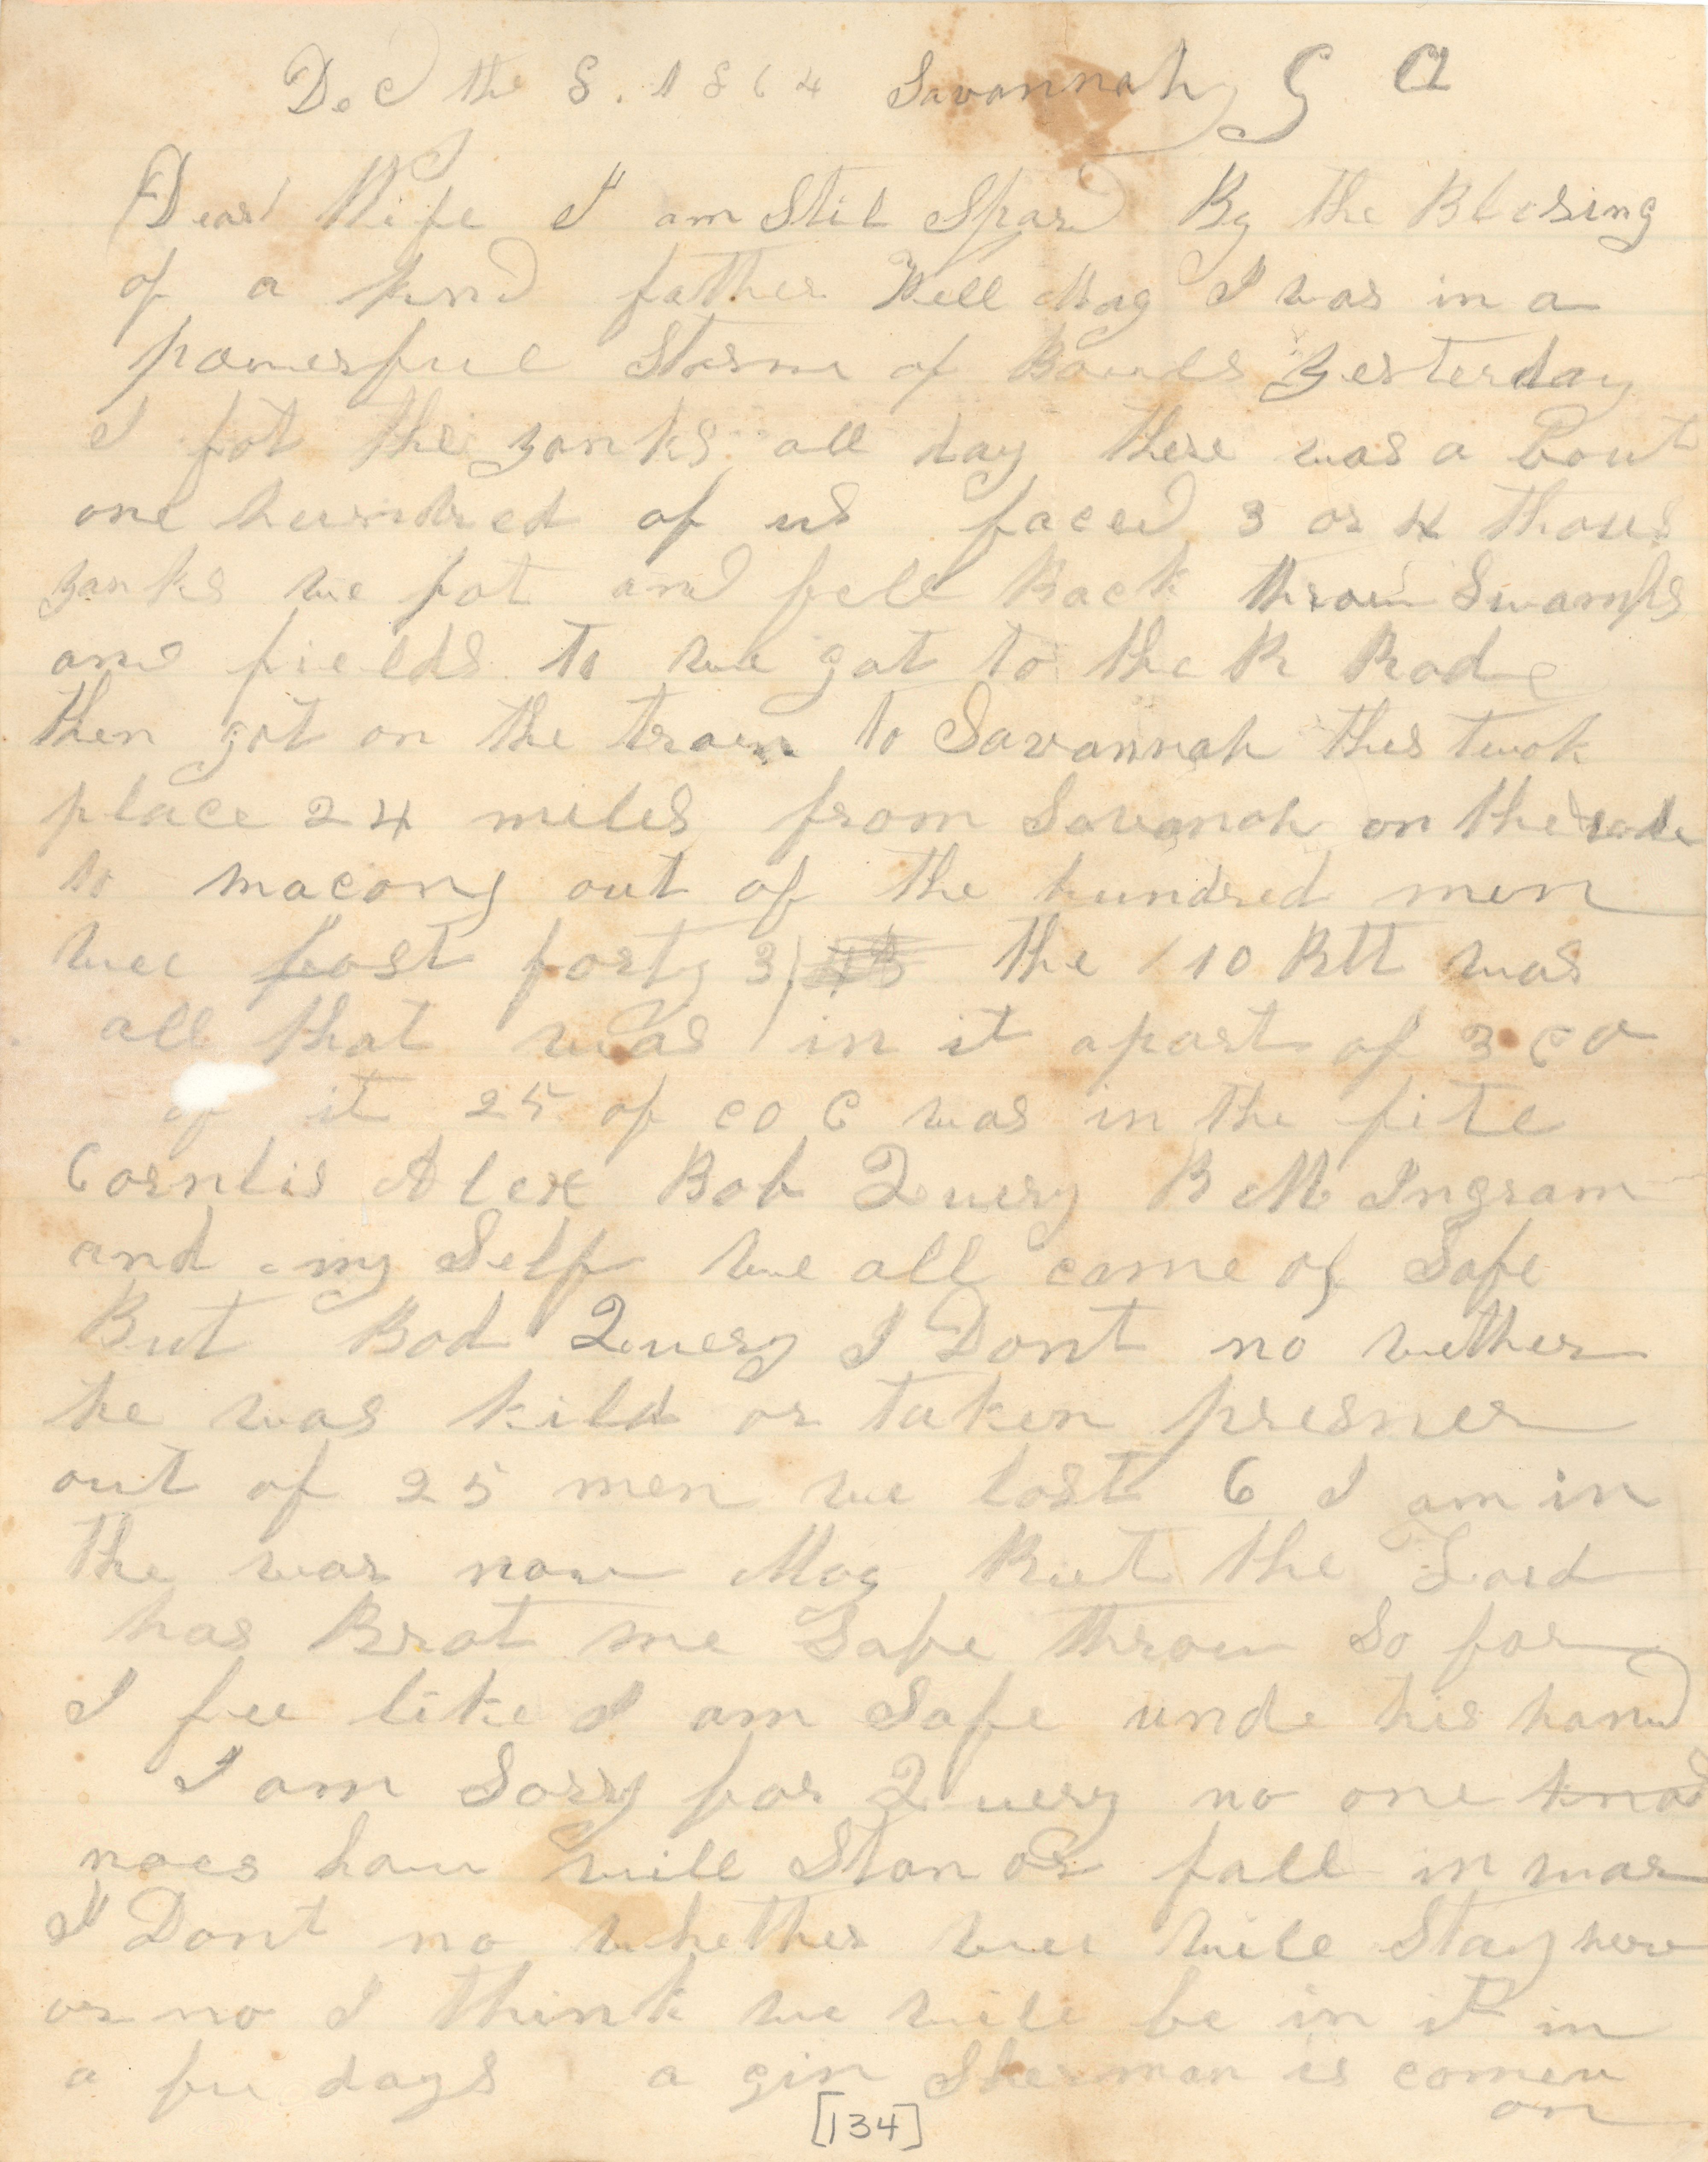 Dec the 8. 1864 Savannah G a
Dear Wife I am Stil Spard By the Blesing
of a kind father Well Mag I was in a
powerful Storm of Bauls yesterday
I fot the yanks all day there was a Bout
one hundred of us faced 3 or 4 thous
yanks we fot and fell Back throu Swamps
and fields to we got to the R Rode
then got on the train to Savannah this twok
place 24 miles from Savanah on the rode
to macong out of the hundred men
wee lost forty 3 the 10 Btt was
all that was in it apart of 3 co
of it 25 of co C was in the fite
Cornlis Alex Bob Query B M Ingram
and my Self we all came of Safe
But Bod Query I Dont no wether
he was kild or taken presner
out of 25 men we lost 6 I am in
the war now Mag But the Lord
has Brot me Safe throu So far
I fee like I am Safe unde his hand
I am Sorry for Query no one knos
noes hou will Stan or fall in war
I Dont no whether wee will Stay here
or no I think we will be in it in
a few days a gin Sherman is comen
on
[134]